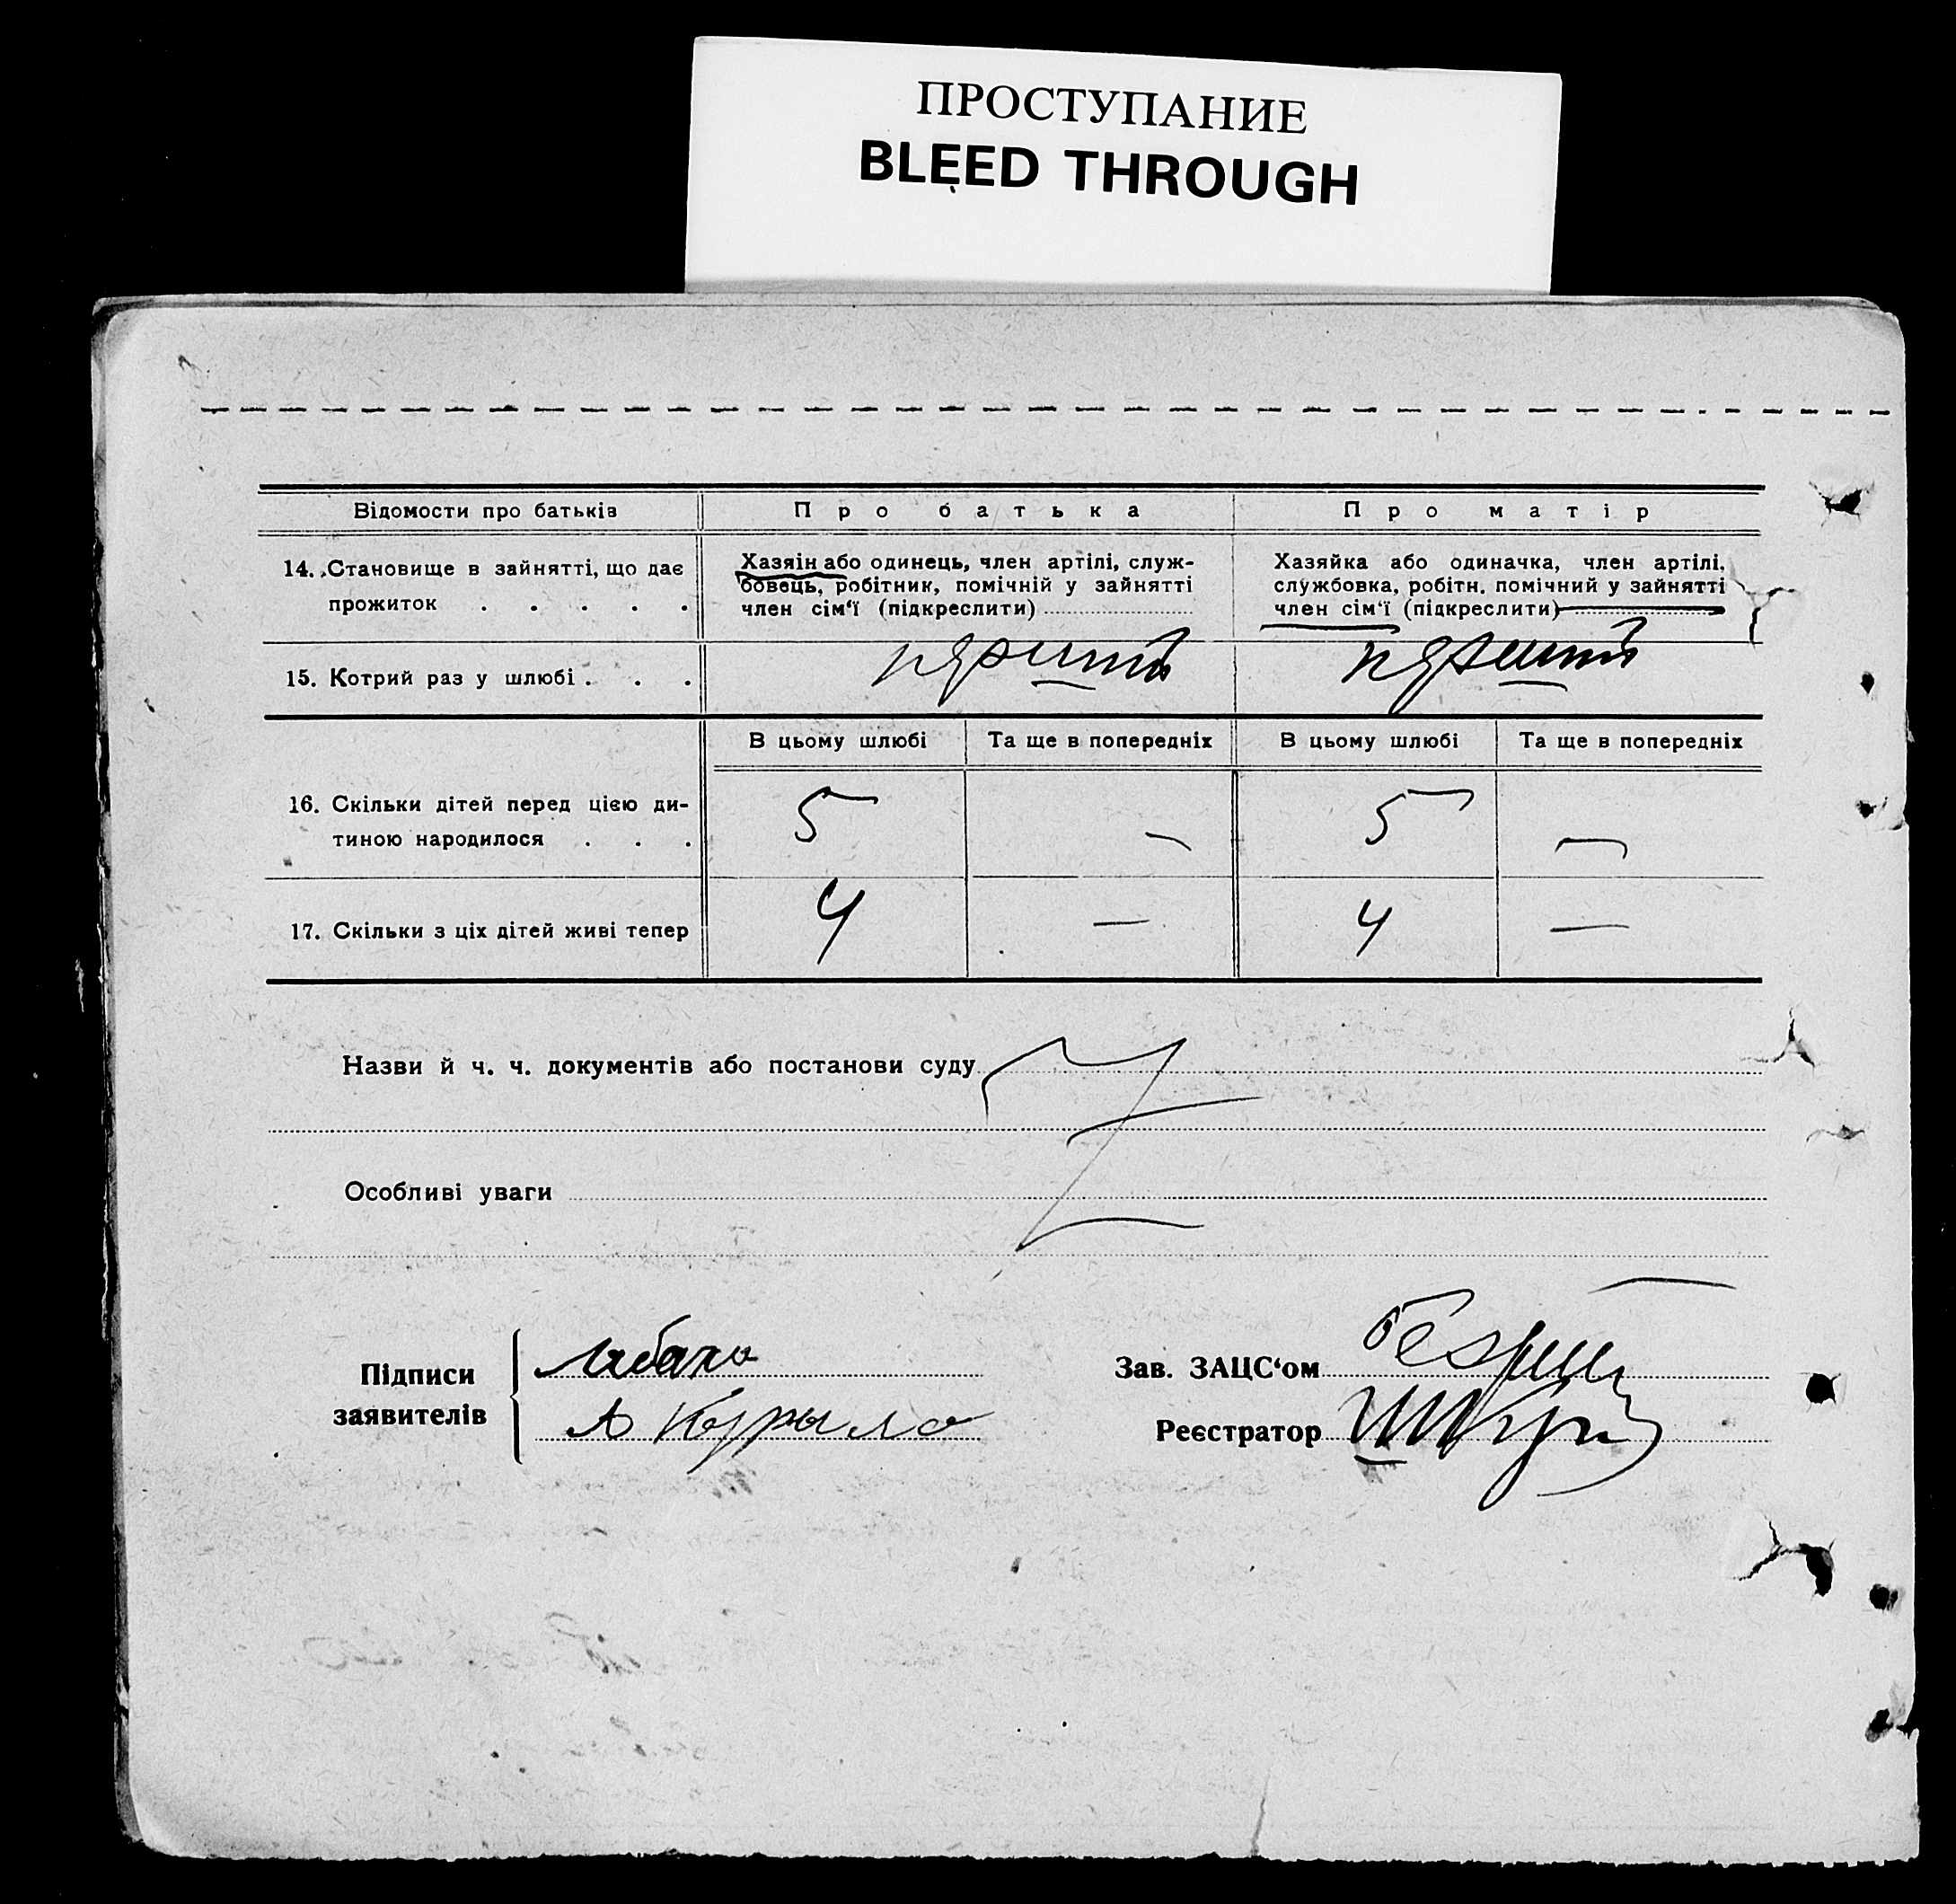 ПРОСТУПАНИЕ
BLEED THROUGH
Відомости про батьків
Про батька
Про матір
14. Становище в зайнятті, що дає
прожиток . . . . .
Хазяїн або одинець, член артілі, служ-
бовець, робітник, помічній у зайнятті
член сім‘ї (підкреслити)
Хазяйка або одиначка, член артілі,
службовка, робітн. помічний у зайнятті
член сім‘ї (підкреслити)
15. Котрий раз у шлюбі . . .
перший
перший
В цьому шлюбі
Та ще в попередніх
В цьому шлюбі
Та ще в попередніх
16. Скільки дітей перед цією ди-
тиною народилося . . .
5 — 5 —
17. Скільки з ціх дітей живі тепер
4 — 4 —
Назви й ч. ч. документів або постанови суду
Особливі уваги
Підписи
заявителів
Зав. ЗАЦС‘ом
Реєстратор